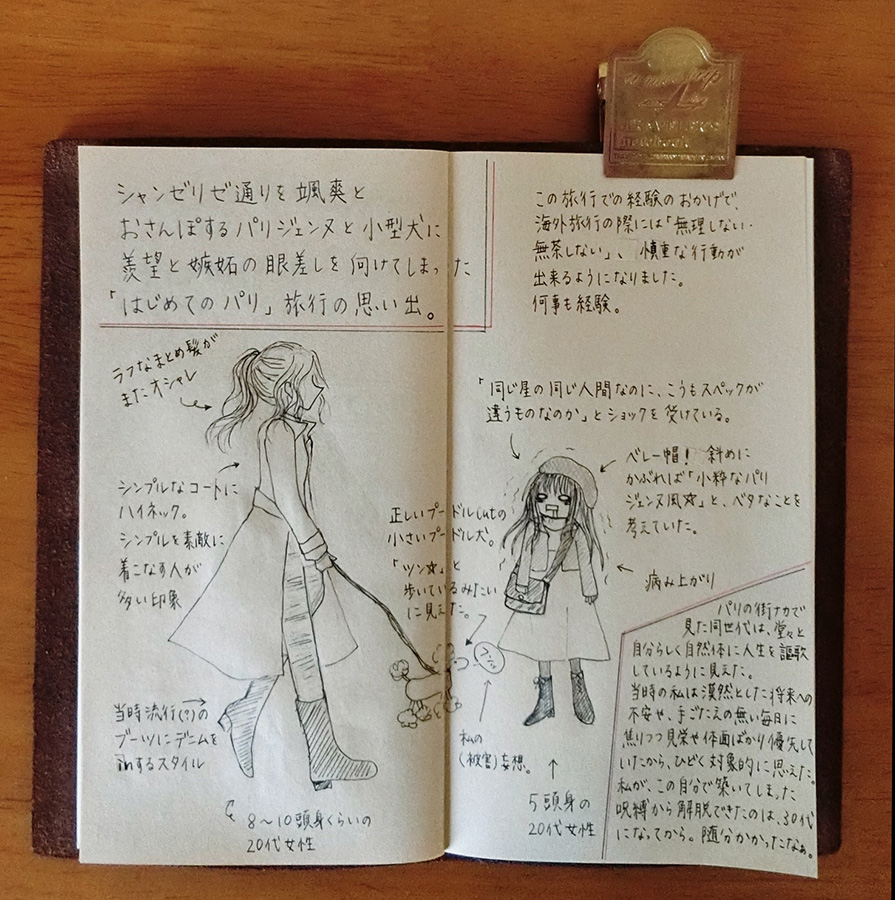 シャンゼリゼ通りを颯爽と
おさんぽするパリジェンヌと小型犬に
羨望と嫉妬の眼差しを向けてしまった
「はじめてのパリ」旅行の思い出。
ラフなまとめ髪が
またオシャレ
シンプルなコートに
ハイネック。
シンプルを素敵に
着こなす人が
多い印象
当時流行(?)の
ブーツにデニムを
inするスタイル
8〜10頭身くらいの
20代女性
正しいプードルcutの
小さいプードル犬。
「ツン☆」と
歩いているみたい
に見えた。
この旅行での経験のおかげで、
海外旅行の際には「無理しない・
無茶しない」、慎重な行動が
出来るようになりました。
何事も経験。
「同じ星の同じ人間なのに、こうもスペックが
違うものなのか」とショックを受けている。
ベレー帽! 斜めに
かぶれば「小粋なパリ
ジェンヌ風☆」と、ベタなことを
考えていた。
病み上がり
私の
(被害)妄想。
5頭身の
20代女性
パリの街ナカで
見た同世代は、堂々と
自分らしく自然体に人生を謳歌
しているように見えた。
当時の私は漠然とした将来への
不安や、手ごたえの無い毎日に
焦りつつ見栄や体面ばかり優先して
いたから、ひどく対象的に思えた。
私が、この自分で築いてしまった
呪縛から解脱できたのは、30代
になってから。随分かかったなぁ。
TRAVELER'S
notebook